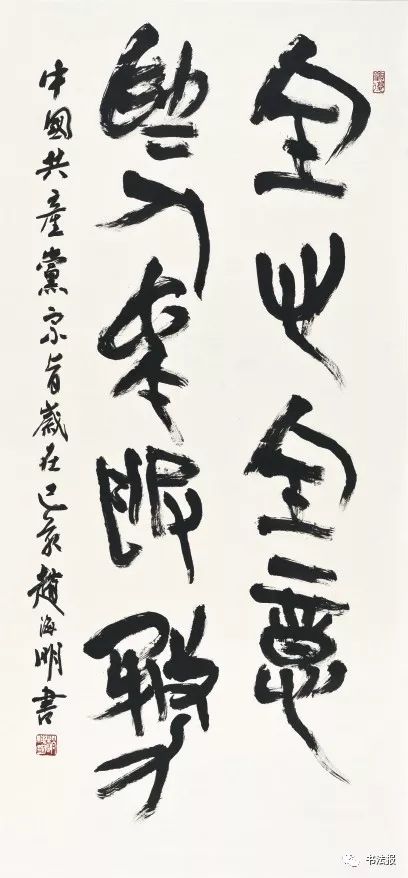 全心全意
為人民服務
中國共產黨宗旨歲在己亥趙海明書
书法报